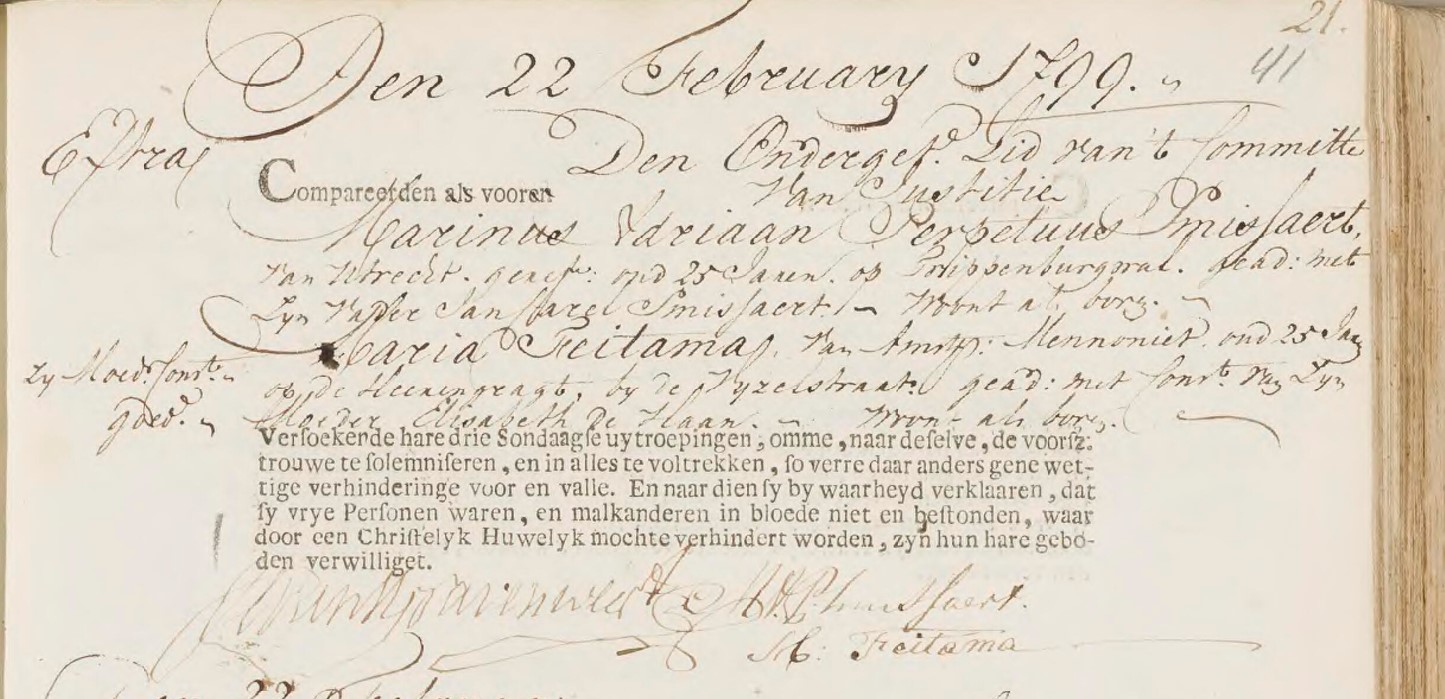 21.
41
Den 22 February 1799.
Extra
Den Onderges. Lid van't Committe
Compareerden als vooren Van Justitie
Marinus Adriaan Perpetuus Smissaert,
van Utrecht. geref: oud 25 Jaaren. op gead: met
Zyn Vader Jan Carel Smissaert. Woont als borg.
Maria Feitama, van Amst: Mennoniet oud 25 Jaar
Zy Moedr. Const.
op de Heerengragt, by de Vyzelstraat, gead: met Const. van Zyn
goed.
Moeder Elisabeth de Haan. Woont als borg.
Versoekende hare drie Sondaagse uytroepingen, omme, naar deselve, de voorsz:
trouwe te solemniseren, en in alles te voltrekken, so verre daar anders gene wet-
tige verhinderinge voor en valle. En naar dien sy by waarheyd verklaaren, dat
sy vrye Personen waren, en malkanderen in bloede niet en bestonden, waar
door een Christelyk Huwelyk mochte verhindert worden, zyn hun hare gebo-
den verwilliget.
M.A.P. Smissaert.
M: Feitama
22